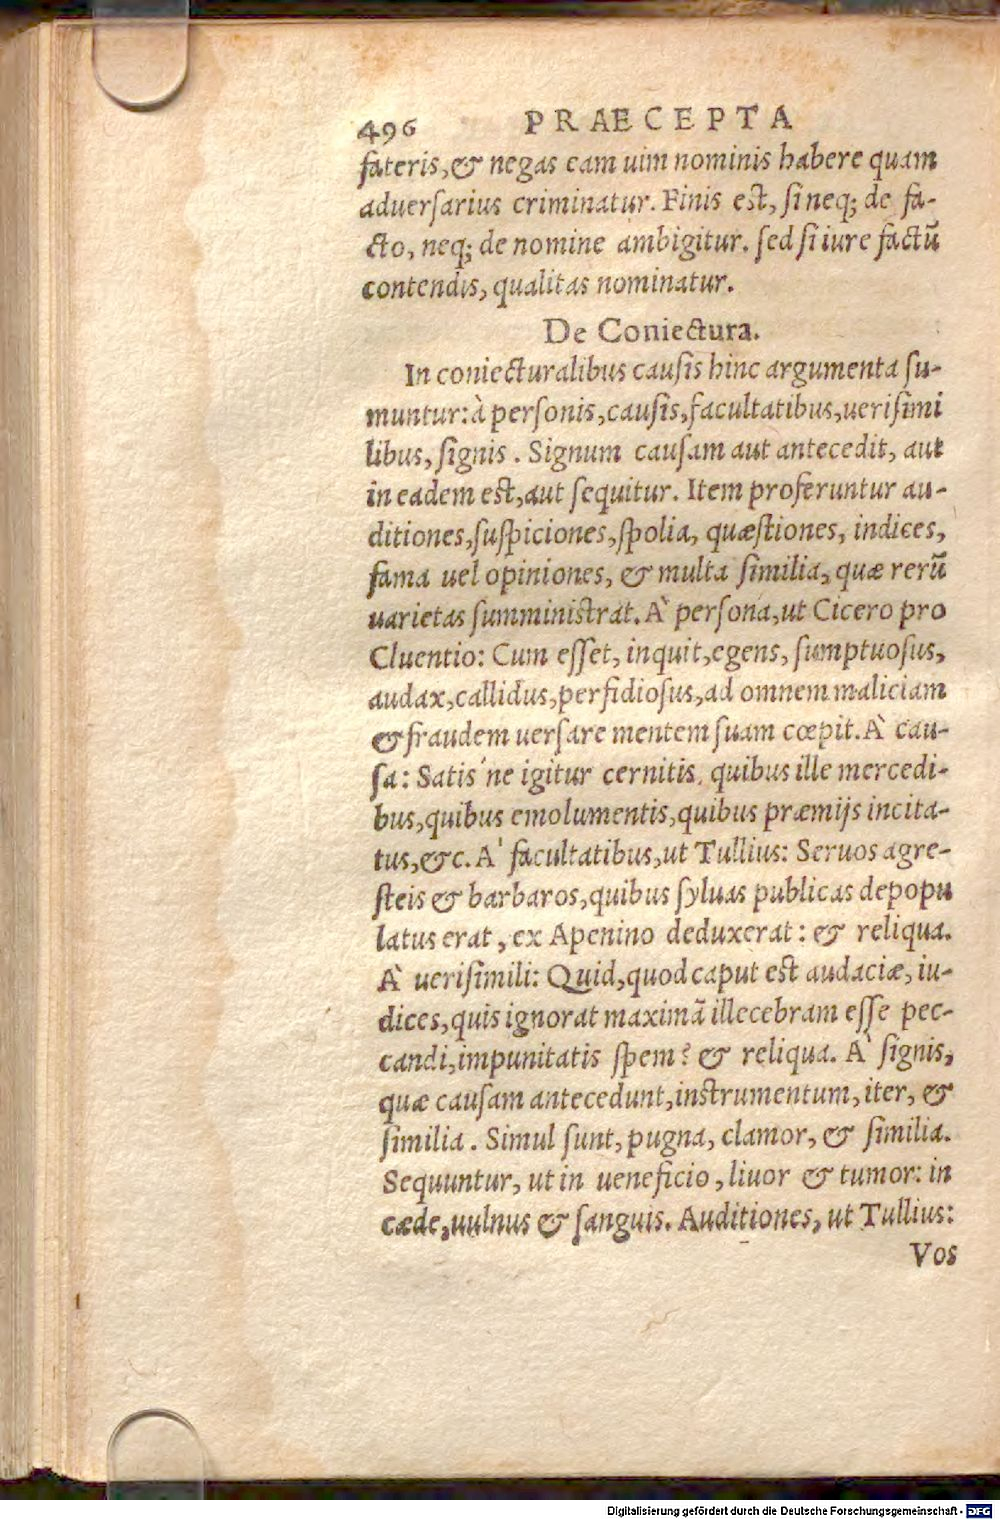 496 PRAECEPTA
fateris, & negas eam uim nominis habere quam
aduersarius criminatur. Finis est, si neq; de fa-
cto, neq; de nomine ambigitur. sed si iure factũ
contendis, qualitas nominatur.
De Coniectura.
In coniecturalibus causis hinc argumenta su-
muntur: à personis, causis, facultatibus, uerisimi
libus, signis. Signum causam aut antecedit, aut
in eadem est, aut sequitur. Item proferuntur au-
ditiones, suspiciones, spolia, quæstiones, indices,
fama uel opiniones, & multa similia, quæ rerũ
uarietas sumministrat. À persona, ut Cicero pro
Cluentio: Cum esset, inquit, egens, sumptuosus,
audax, callidus, perfidiosus, ad omnem maliciam
& fraudem uersare mentem suam cœpit. À cau-
sa: Satis'ne igitur cernitis, quibus ille mercedi-
bus, quibus emolumentis, quibus præmijs incita-
tus, &c. A' facultatibus, ut Tullius: Seruos agre-
steis & barbaros, quibus syluas publicas depopu
latus erat, ex Apenino deduxerat: & reliqua.
À uerisimili: Quid, quod caput est audaciæ, iu-
dices, quis ignorat maximã illecebram esse pec-
candi, impunitatis spem? & reliqua. À signis,
quæ causam antecedunt, instrumentum, iter, &
similia. Simul sunt, pugna, clamor, & similia.
Sequuntur, ut in ueneficio, liuor & tumor: in
cæde, uulnus & sanguis. Auditiones, ut Tullius:
Vos
Digitalisierung gefördert durch die Deutsche Forschungsgemeinschaft - DFG